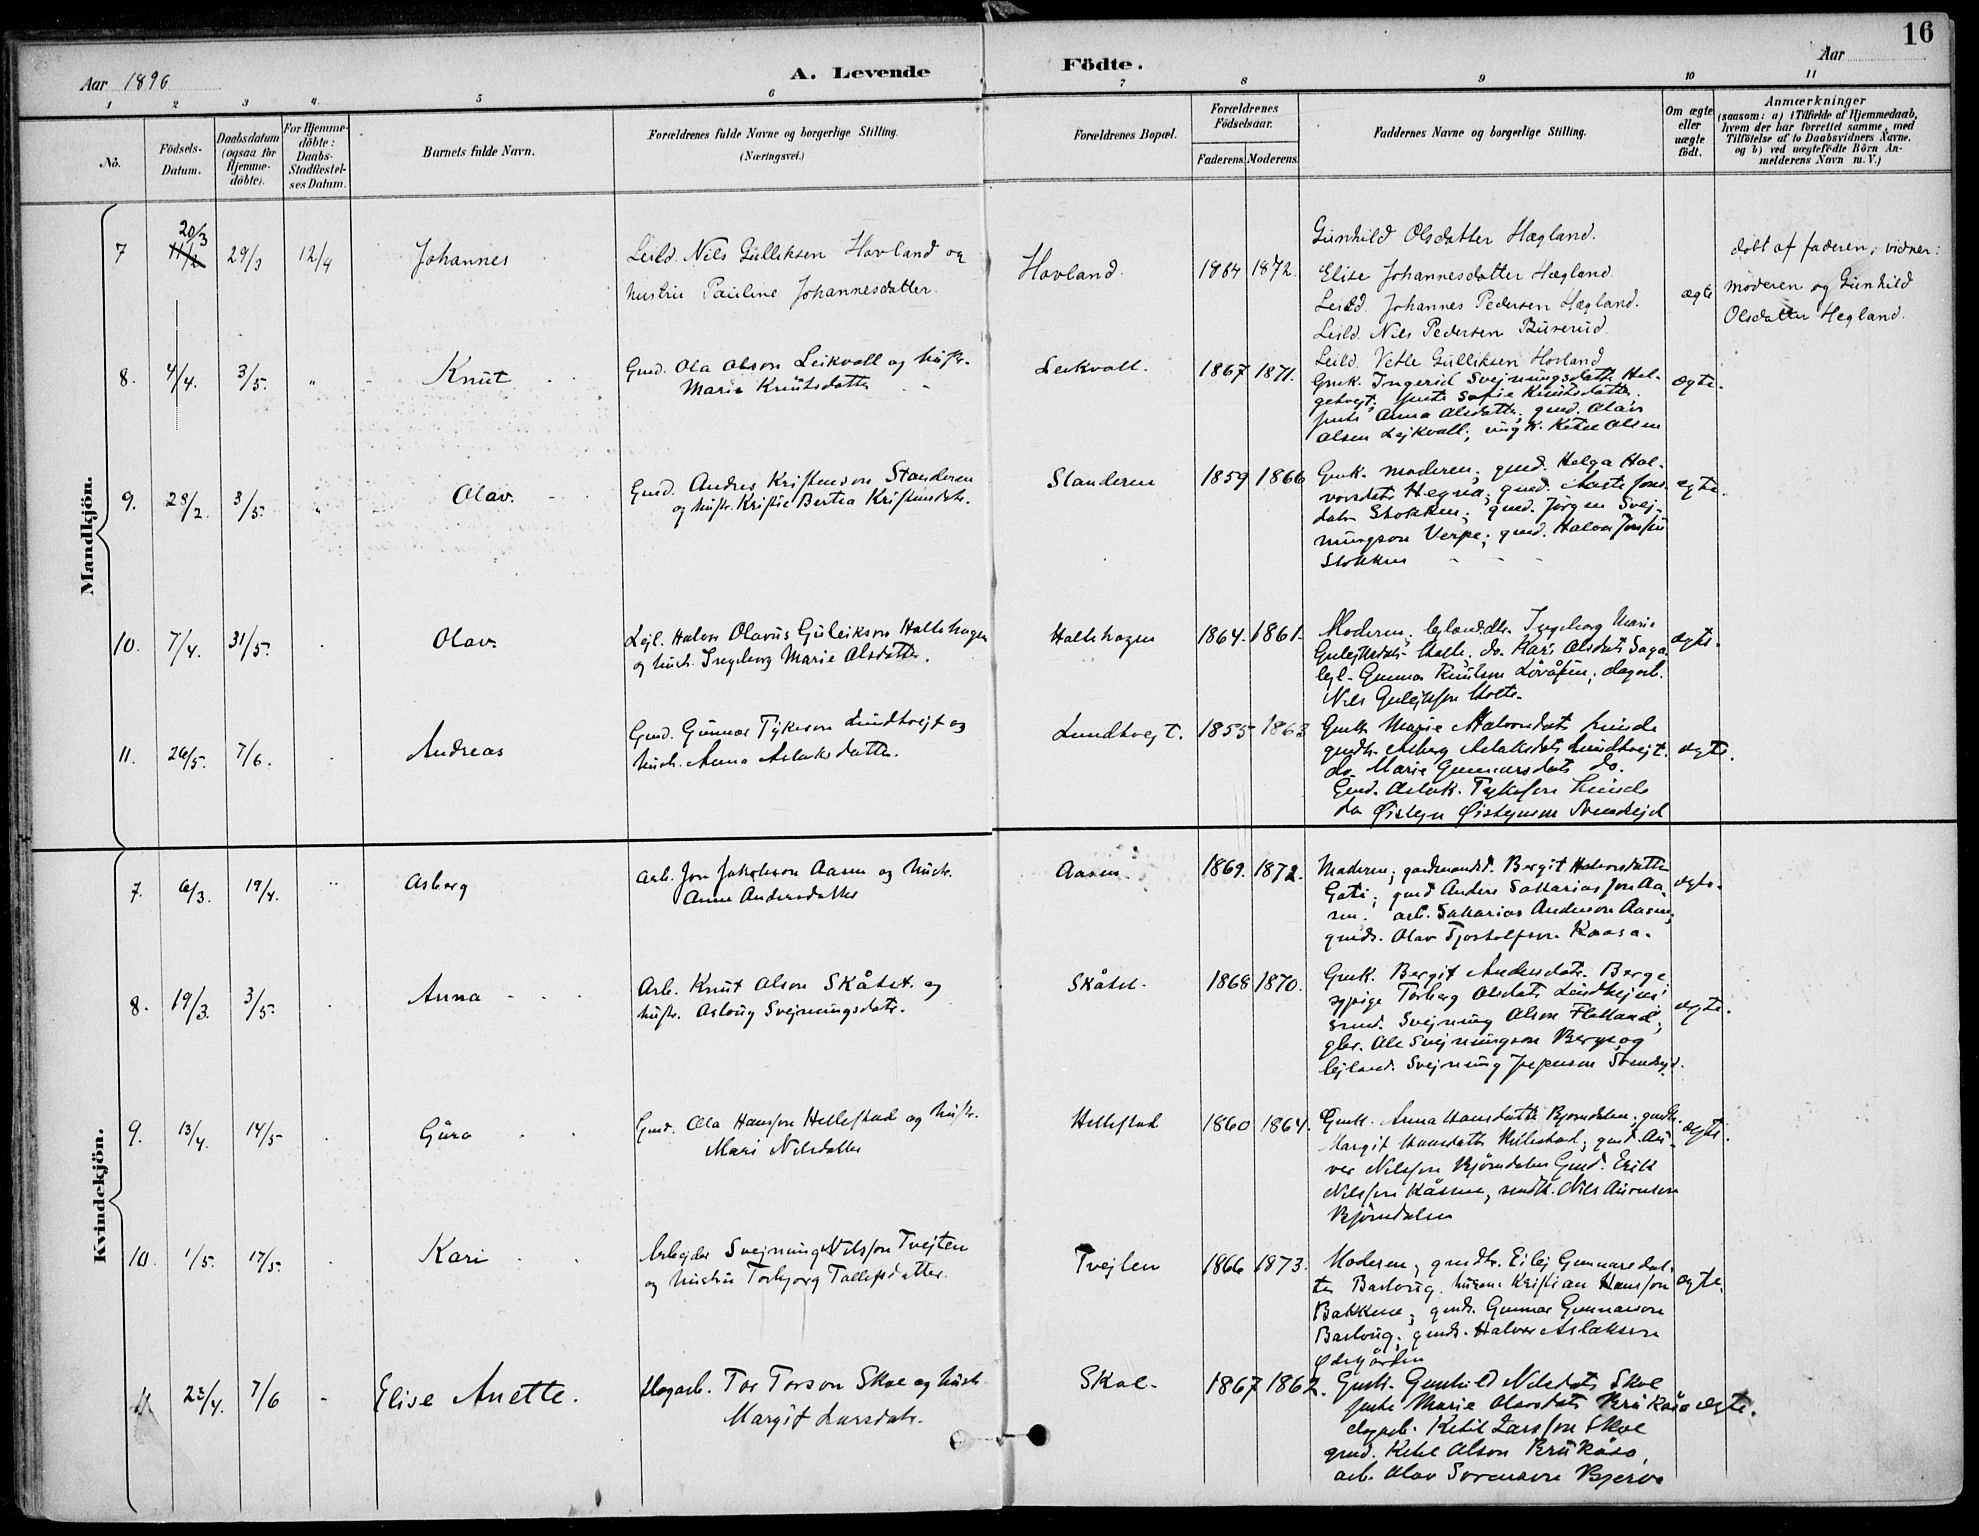 16
Aar 1896
A. Levende Födte.
Aar
1 2 3 4 5 6 7 8 9 10 11
No.
Födsels-Datum.
Daabsdatum (ogsaa for Hjemme-döbte).
For Hjemme-döbte: Daabs-Stadfæstel-ses Datum.
Barnets fulde Navn.
Forældrenes fulde Navne og borgerlige Stilling.
(Næringsvei.)
Forældrenes Bopæl.
Forældrenes Födselsaar.
Faderens. Moderens.
Faddernes Navne og borgerlige Stilling.
Om ægte eller uægte födt.
Anmærkninger
(saasom: a) i Tilfælde af Hjemmedaab,
hvem der har forrettet samme, med
Tilföielse af to Daabsvidners Navne,
og b) ved uægtefödte Börn An-
melderens Navn m. V.)
Mandkjön.
7 20/3 29/3 12/4 Johannes
Leild. Nils Gulliksen Hovland og
hustru Pauline Johannesdatter.
Hovland. 1864 1872.
Gunhild Olsdatter Hægland.
Elise Johannesdatter Hægland.
Leild. Johannes Pedersen Hægland.
Leild. Nils Pedersen Bururud.
Leild. Vetle Gulliksen Hovland
ægte
döbt af faderen; vidner:
moderen og Gunhild
Olsdatter Hegland.
8. 4/4. 3/5. " Knut
Gmd. Ola Olson Leikvoll og hustr.
Marie Knutsdatter
Leikvoll. 1867 1871.
Gmk. Ingerid Svejnungsdatt. Hel-
getvejt; jente Sofie Knutsdatter.
jente Anna Olsdatter; gmd. Olav
Olsen Lejkvoll; ungk. Ketil Olsen
ægte.
9. 28/2. 3/5. " Olav.
Gmd. Andres Kristenson Slanderen
og hustr. Kristie Bertea Kristensdtr.
Slanderen 1859 1866
Gmk. moderen; gmd. Helga Hal-
vorsdatr Hegna; gmd. Aaste Jons-
datr Stokken; gmd. Jörgen Svej-
nungson Verpe; gmd. Halvor Jonsen
Stokken
ægte.
10. 7/4. 31/5. Olav.
Lejl. Halvor Olavus Guleikson Holtehagen
og hustr. Ingeborg Marie Olsdatter.
Holtehagen 1864. 1861.
Moderen; lejland.dtr. Ingeborg Marie
Gulejksdatr Holte. do. Kari Olsdatr Saga.
lejl. Gunnar Knutson Lövåsen; dagarb.
Nils Gulejkson Holte.
ægte.
11. 26/5. 7/6. Andreas
Gmd. Gunnar Tykeson Lundtvejt og
hustr. Anna Aslaksdatter.
Lundtvejt. 1855 1863
Gmk. Marie Halvorsdatr Linde
gmdtr. Asberg Aslaksdatr Lundtvejt.
do. Marie Gunnarsdatr do.
Gmd. Aslak Tykeson Linde
do Øistejn Øistejnson Svendsejd
ægte.
Kvindekjön.
7. 6/3. 19/4. " Asberg
Arb. Jon Jakobson Aasen og hustr.
Anne Andersdatter
Aasen. 1869. 1872.
Moderen; gardmandsd. Bergit Halvorsdatter
Gåti; gmd Anders Sakarias Jon Aa-
sen. arb. Sakarias Anderson Aasen,
gmds. Olav Tjostolfson Kaasa.
ægte.
8. 19/3. 3/5. Anna
Arb. Knut Olson Skåtet. og
hustr. Aslaug Svejnungsdatr.
Skåtet. 1868 1870.
Gmk. Bergit Andersdatr. Berge
Torberg Olsdatr Lindhejm;
Svejnung Olson Flatland;
gbr. Ole Svejnungson Berge og
lejland. Svejnung Jespersen Svendsejd.
ægte.
9. 13/4. 14/5 Guro
Gmd. Ola Hansson Hellestad og hustr.
Mari Nilsdatter
Hellestad 1860 1864.
Gmk. Anna Hansdatter Bjørndalen; gmdtr.
Margit Hansdatter Hellestad; gmd. An-
ver Nilsson Bjørndalen Gmd. Erik
Nilsson Kåsene, smdk. Nils
Bjørndalen
ægte.
10. 1/5. 17/5. Kari
Arbejder Svejnung Nilsson Tvejten
og hustru Torbjorg Tollefsdatter.
Tvejten 1866 1873.
Moderen; gmdtr. Eilej Gunnarsdat-
ter Baslaug. husm. Kristian Hansson
Bakkene; gmds. Gunnar Gunnarson
Baslaug; gmds. Halvor Aslakson
Ødegården
ægte.
11 23/4. 7/6 Elise Anette.
Dagarb. Tor Torson Skoe og hustr.
Margit Larsdatr.
Skoe. 1867 1862.
Gmk. Gunhild Nilsdatr Skoe
jente Marie Olavsdatr Brukåsa
dagarb. Ketil Larsson Skoe
gmd. Ketil Olson Brukåsa,
arb. Olav Sorenson Bjerva
ægte.